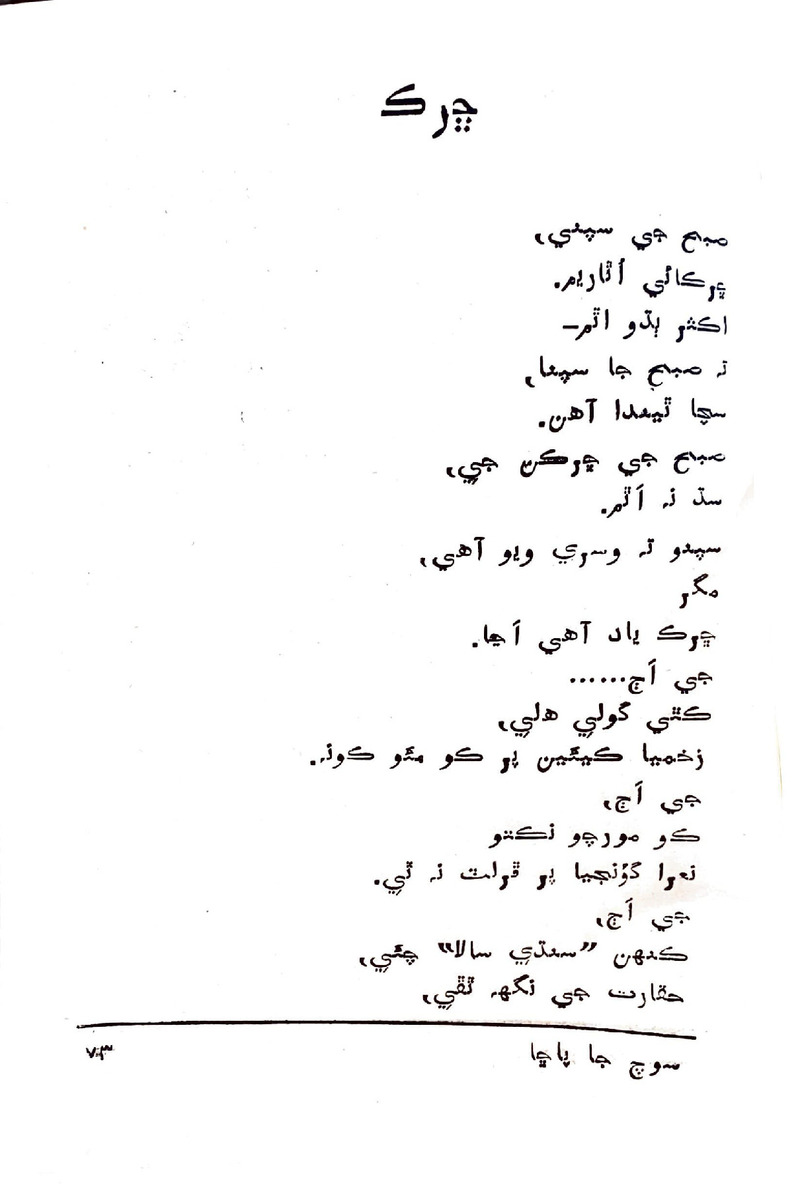 ڇرڪ
صبح جي سپني،
ڇرڪائي اُٿاريم.
اڪثر ٻڌو اٿم—
تہ صبح جا سپنا،
سچا ٿيندا آهن.
صبح جي ڇرڪن جي،
سڌ نہ اَٿم.
سپنو تہ وسري ويو آهي،
مگر
ڇرڪ ياد آهي اَڃا.
جي اَڄ......
ڪٿي گولي هلي،
زخميا ڪيئين پر ڪو مئو ڪونہ.
جي اَڄ،
ڪو مورچو نڪتو
نعرا گؤنجيا پر ڦرلٽ نہ ٿي.
جي اَڄ،
ڪنهن ”سنڌي سالا“ چئي،
حقارت جي نگھہ ٿڦي،
سوچ جا پاڇا